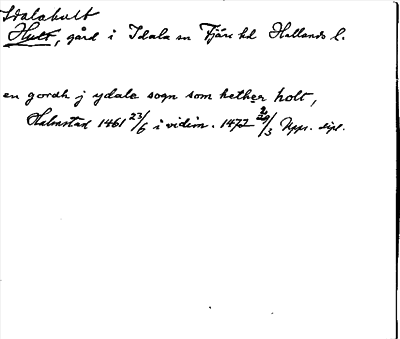 Idalahult
Hult, gård i Idala sn Fjäre hd Hallands l.
en gordh j ydale sogn som hether holt,
Halmstad 1461 23/6 i vidim. 1472 20/3 Upps. dipl.